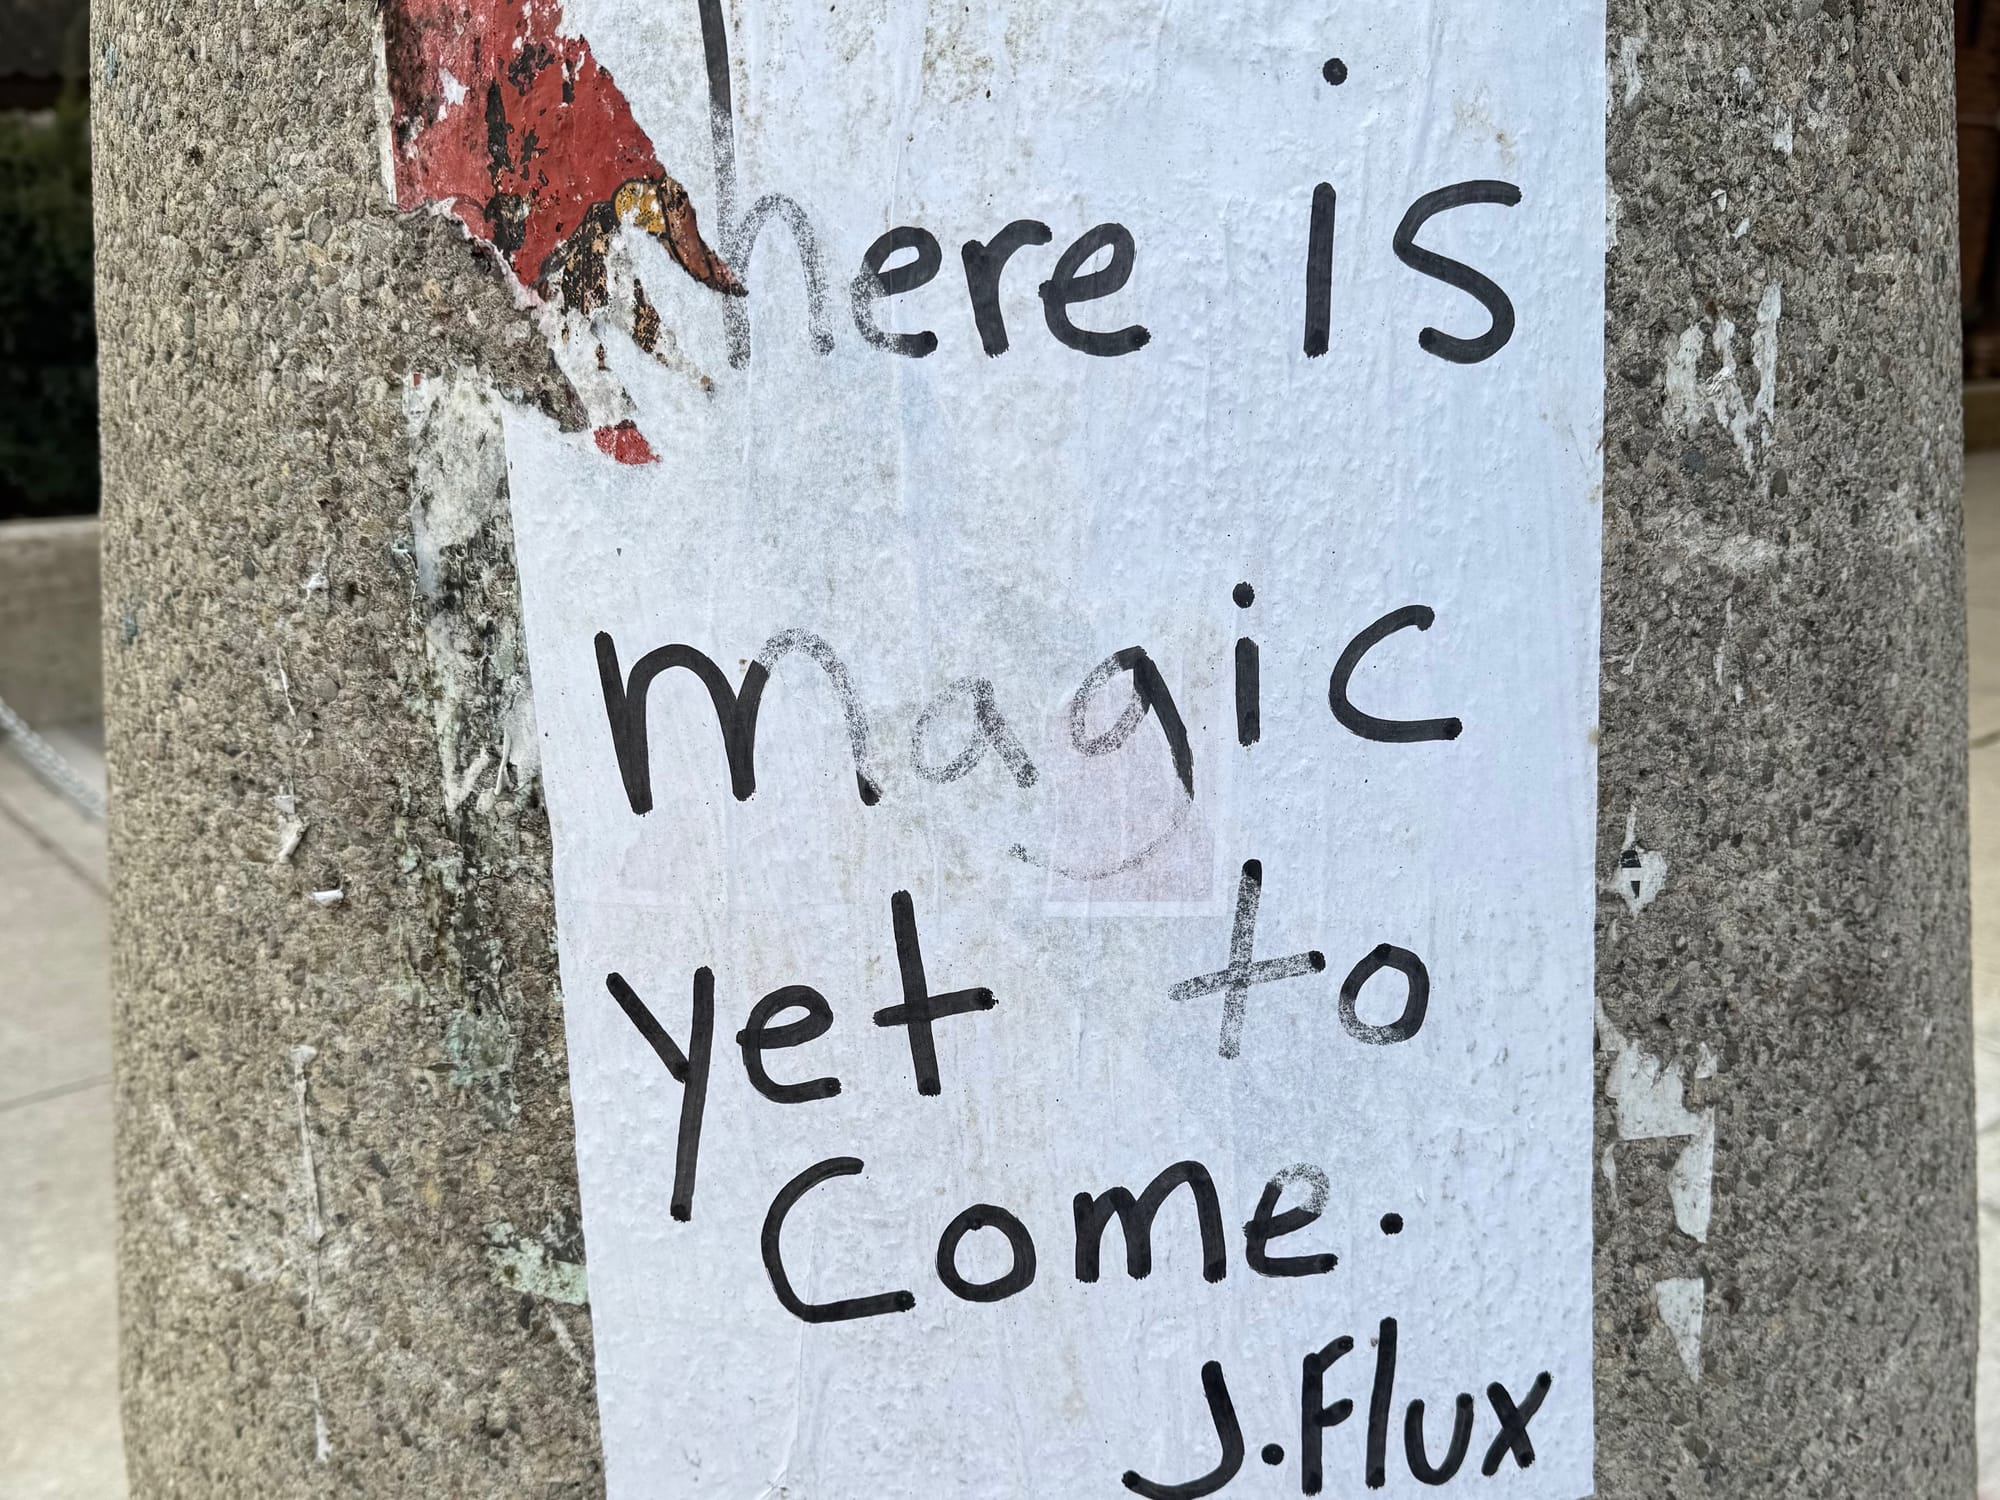 here is
magic
yet to
Come.
J.Flux